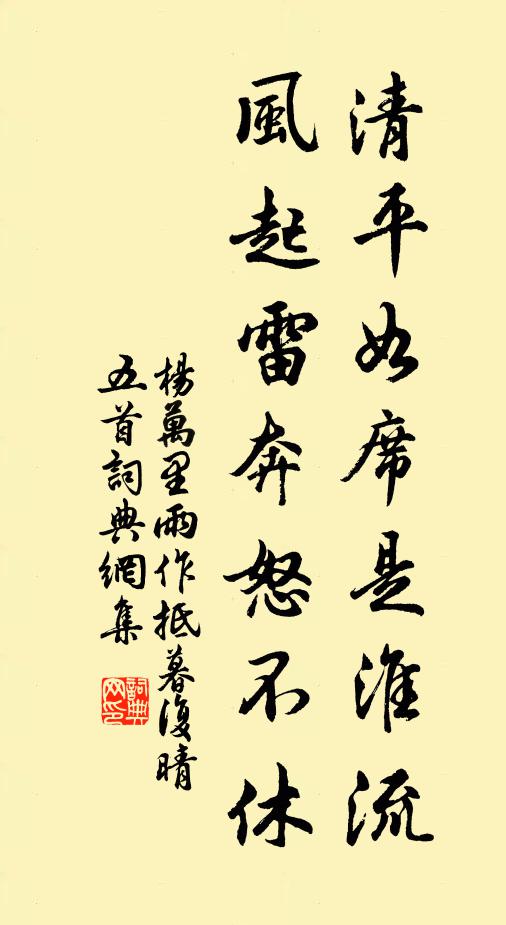 清平如席是淮流
風起雷奔怒不休
楊萬里雨作抵暮復晴
五首詞典網集
詞典
网印